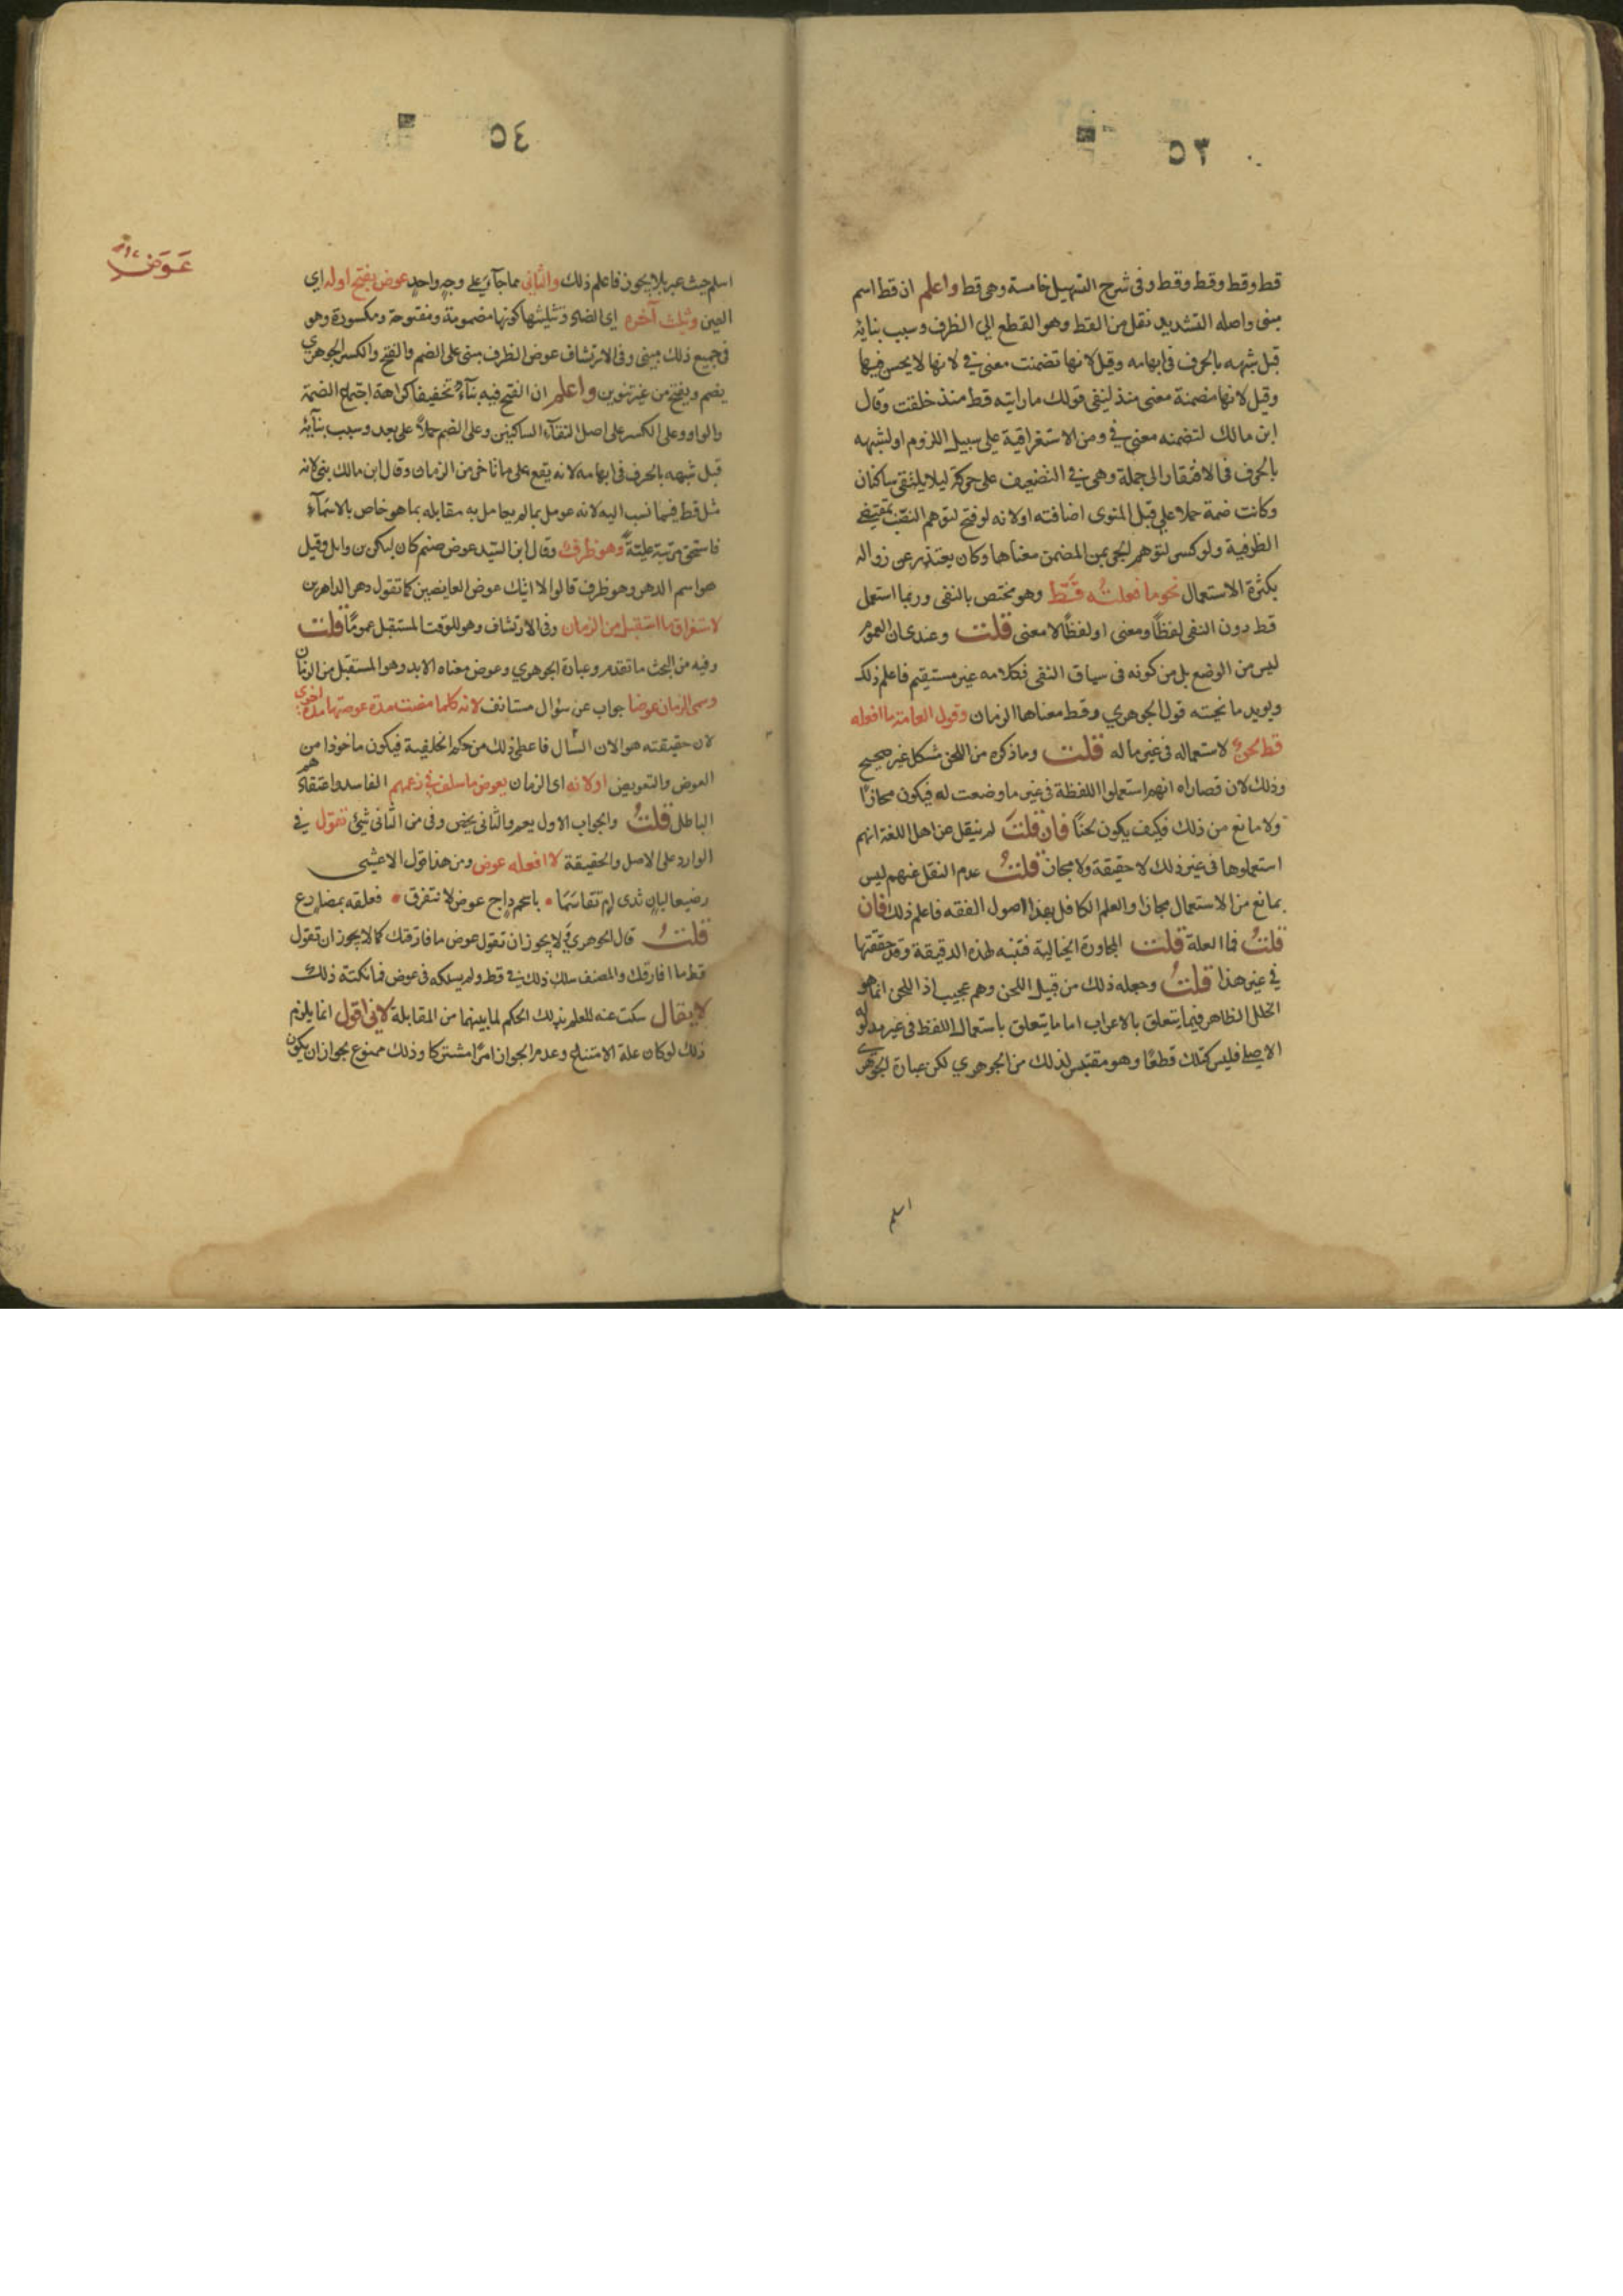 ٥٣
قط وقط وقط وقط وفى شرح التسهيل خامسة وهى قط واعلم ان قط اسم
مبنى واصله التشديد نقل من القط وهو القطع الى الظرف وسبب بنائه
قيل شبهه بالحرف فى ابهامه وقيل لانها تضمنت معنى فى لانها لا يحسن فيها
وقيل لانها مضمنة معنى منذ لينفى قولك ما رايته قط منذ خلقت وقال
ابن مالك لتضمنه معنى فى ومن الاستغراقية على سبيل اللزوم او لشبهه
بالحرف فى الافتقار الى جملة وهى فى التضعيف على حركة ليلا يلتقى ساكنان
وكانت ضمة حملا على قبل المنوى اضافته او لانه لو فتح لتوهم النصب بمقتضى
الظرفية ولو كسر لتوهم الجر بمن المضمن معناها وكان يعتذر عن زواله
بكثرة الاستعمال نحو ما فعلته قط وهو مختص بالنفى وربما استعمل
قط دون النفى لفظاً ومعنى او لفظاً لا معنى قلت وعندى ان العموم
ليس من الوضع بل من كونه فى سياق النفى فكلامه غير مستقيم فاعلم ذلك
ويويد ما نحته قول الجوهري وقط معناها الزمان وقول العامة ما افعله
قط لحن لاستعماله فى غير ما له قلت وما ذكره من اللحن مشكل غير صحيح
وذلك لان قصاراه انهم استعملوا اللفظة فى غير ما وضعت له فيكون مجازاً
ولا مانع من ذلك فكيف يكون لحناً فان قلت لم ينقل عن اهل اللغة انهم
استعملوها فى غير ذلك لا حقيقة ولا مجاز قلت عدم النقل عنهم ليس
بمانع من الاستعمال مجازا والعلم الكافل بهذا اصول الفقه فاعلم ذلك فان
قلت فما العلة قلت المجاورة الخيالية فتنبه لهذه الدقيقة وقد حققتها
فى غير هذا قلت وجعله ذلك من قبيل اللحن وهم عجيب اذ اللحن انما هو
الخلل الظاهر فيما يتعلق بالاعراب اما ما يتعلق باستعمال اللفظ فى غير مدلوله
الاصلى فليس كذلك قطعاً وهو مقتبس لذلك من الجوهري لكن عبارة الجوهرى
اسلم
٥٤
عوض
اسلم حيث عبر بلا يجوز فاعلم ذلك والثانى مما جآء على وجه واحد عوض بفتح اوله اي
العين وتثليث آخره اى الضاد وتثليثها كونها مضمومة ومفتوحة ومكسورة وهو
فى جميع ذلك مبنى وفى الارتشاف عوض الظرف مبنى على الضم والفتح والكسر الجوهري
يضم ويفتح من غير تنوين واعلم ان الفتح فيه بناء تخفيفا كراهة اجتماع الضمة
والواو وعلى الكسر على اصل التقآء الساكنين وعلى الضم حملاً على بعد وسبب بنآئه
قيل شبهه بالحرف فى ابهامه لانه يقع على ما تاخر من الزمان وقال ابن مالك بنى لانه
مثل قط فيما نسب اليه لانه عومل بما لم يعامل به مقابله بما هو خاص بالاسمآء
فاستحق مرتبة عليّة وهو ظرف وقال ابن السيد عوض صنم كان لبكر بن وايل وقيل
هو اسم الدهر وهو ظرف قالوا لا اتيك عوض العايضين كما تقول دهر الداهرين
لاستغراق ما استقبل من الزمان وفى الارتشاف وهو للوقت المستقبل عموماً قلت
وفيه من البحث ما تقدم وعبارة الجوهري وعوض معناه الابد وهو المستقبل من الزمان
وسمى الزمان عوضا جواب عن سؤال مستانف لانه كلما مضت مدة عوضتها مدة اخرى
لان حقيقته هو الان السّال فاعطى ذلك من حكم الخلفية فيكون ماخوذا من
العوض والتعويض او لانه اى الزمان يعوض ما سلف فى زعمهم الفاسد واعتقادهم
الباطل قلت والجواب الاول يعم والثانى يخص وفى من الثانى شئ تقول فى
الوارد على الاصل والحقيقة لا افعله عوض ومن هذا قول الاعشى
رضيعا لبان ثدى ام تقاسما • باسحم داج عوض لا نتفرق • فعلقه بمضارع
قلت قال الجوهري لا يجوز ان تقول عوض ما فارقتك كما لا يجوز ان تقول
قط ما افارقك والمصنف سلك ذلك فى قط ولم يسلكه فى عوض فما نكتة ذلك
لا يقال سكت عنه للعلم بذلك الحكم لما بينهما من المقابلة لانى اقول انما يلزم
ذلك لو كان علة الامتناع وعدم الجواز امراً مشتركا وذلك ممنوع لجواز ان يكون